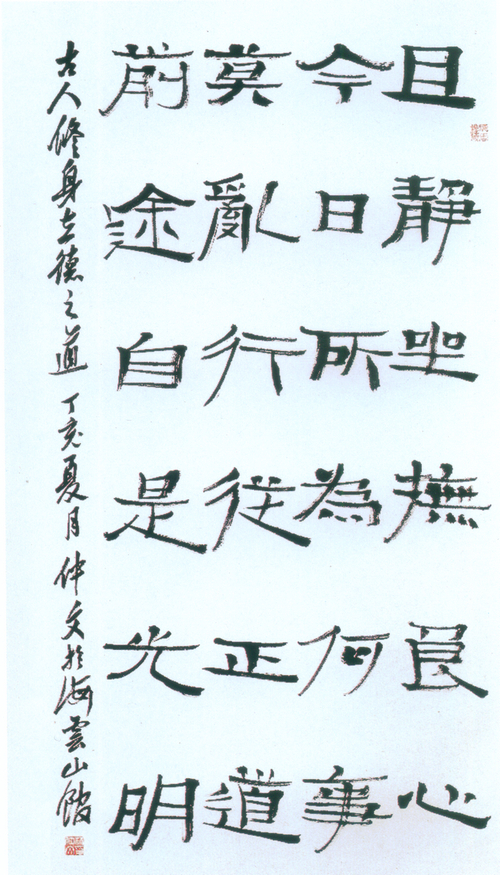 且静坐撫良心
今日所為何事
莫亂行從正道
前途自是光明
古人修身立德之道丁亥夏月仲文於海雲山館